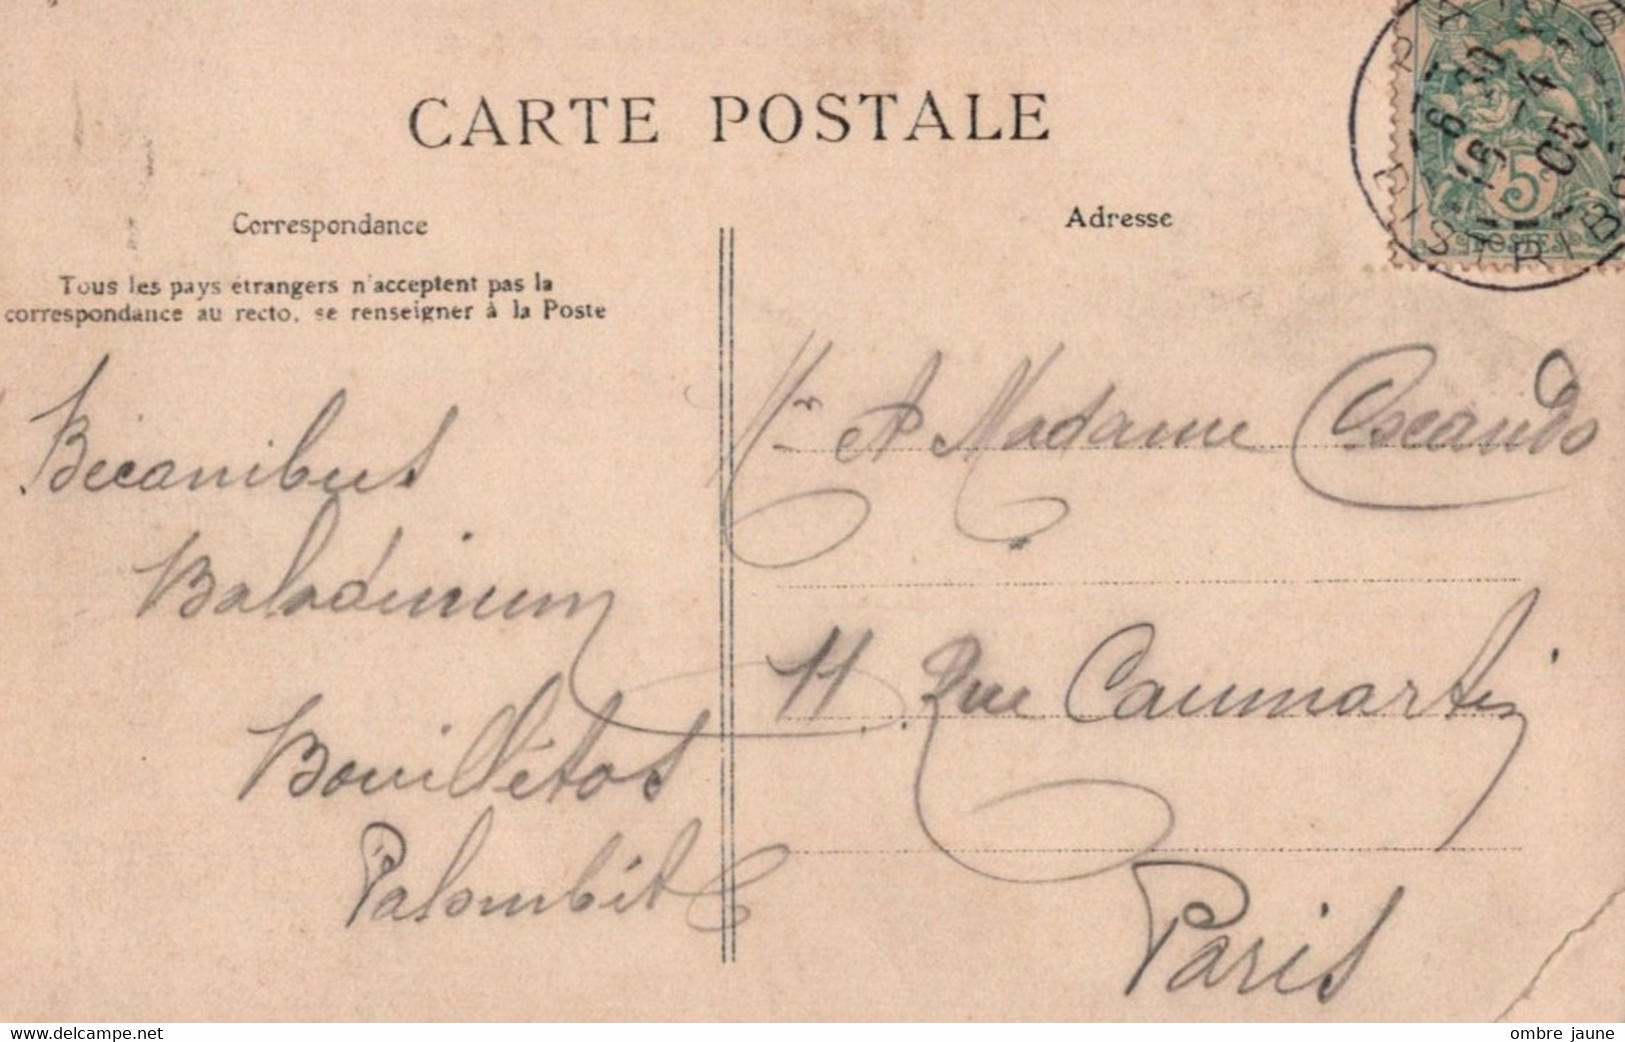 CARTE POSTALE
Correspondance
Adresse
Tous les pays étrangers n'acceptent pas la
correspondance au recto, se renseigner à la Poste
Bécanibus
Baladinum
Bouillétos
Palombit
Mr et Madame
11 Rue Caumartin
Paris
PARIS
6 30
4
05
DISTRIB
5
POSTES
delcampe.net
ombre jaune